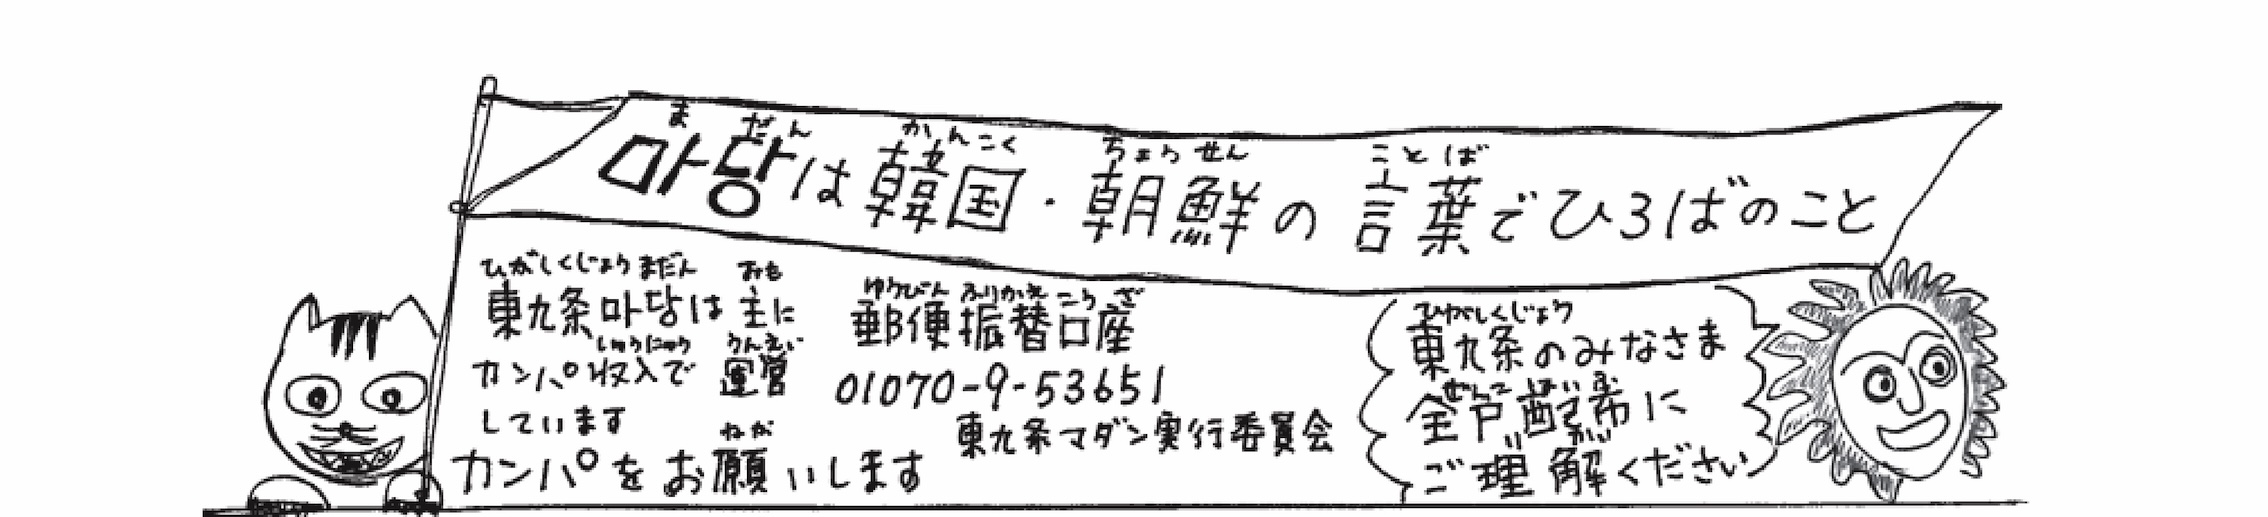 ま だん かんこく ちょうせん ことば
마당は韓国・朝鮮の言葉でひろばのこと
ひがしくじょうまだん おも
東九条마당は主に
しゅうにゅう うんえい
カンパ収入で運営
しています
ねが
カンパをお願いします
ゆうびんふりかえこうざ
郵便振替口座
01070-9-53651
東九条マダン実行委員会
ひがしくじょう
東九条のみなさま
ぜんこはいふ
全戸配布に
りかい
ご理解ください